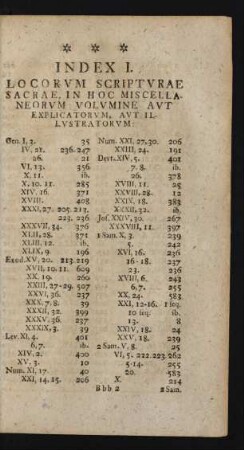 * * *
INDEX I.
LOCORVM SCRIPTVRAE
SACRAE, IN HOC MISCELLA-
NEORVM VOLVMINE AVT
EXPLICATORVM, AVT IL-
LVSTRATORVM:
Gen. I, 3. 35
IV, 21. 236.247
26. 21
VI, 13. 356
X. 11. ib.
X. 10. 11. 285
XIV. 16. 371
XVIII. 408
XXXI, 27. 205. 213.
223. 236
XXXVII, 34. 376
XLII, 28. 371
XLIII, 12. ib.
XLIX, 9. 196
Exod. XV, 20. 213.219
XVII, 10. 11. 609
XX. 19. 260
XXIII, 27-29. 507
XXVI, 36. 237
XXX. 7. 8. 39
XXXII, 32. 399
XXXV. 36. 237
XXXIX, 3. 39
Lev. XI, 4. 401
6, 7. ib.
XIV, 2. 400
XV. 3. 10
Num. XI, 17. 40
XXI, 14. 15. 206
Num. XXI, 27. 30. 206
XXIII, 24. 191
Deut. XIV, 5. 401
7. 8. ib.
26. 378
XVIII. 11. 25
XXVIII, 28. 12
XXIX. 18. 383
XXXII, 32. ib.
Jos. XXIV, 30. 267
XXXVIII, 11. 397
1 Sam. X, 3. 239
5. 242
XVI, 16. 236
16-18. 237
23. 236
XVIII, 6. 243
6,7. 255
XX. 24. 583
XXI, 12-16. 1 seq.
10 seq. ib.
13. 8
XXIV, 18. 24
XXV, 18. 239
2 Sam. V, 8. 25
VI, 5. 222.223.262
5-14. 255
20. 583
X. 214
B b b 2
2 Sam.